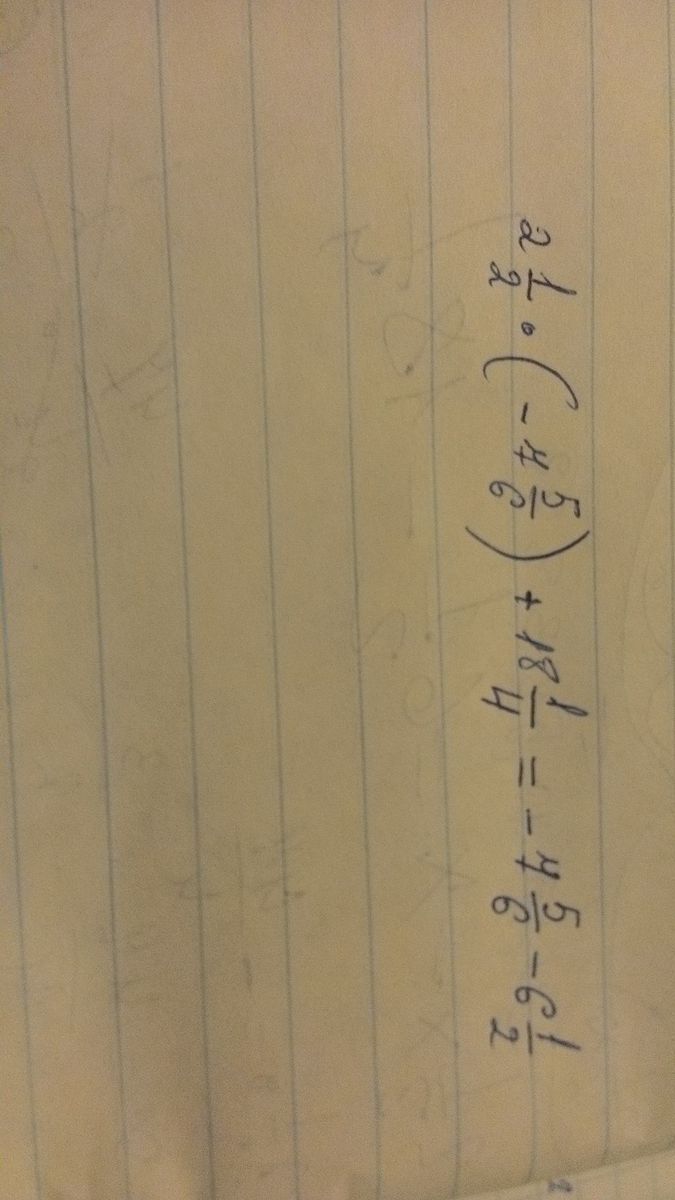 2 1/2 · (-4 5/6) + 18 1/4 = -4 5/6 - 6 1/2